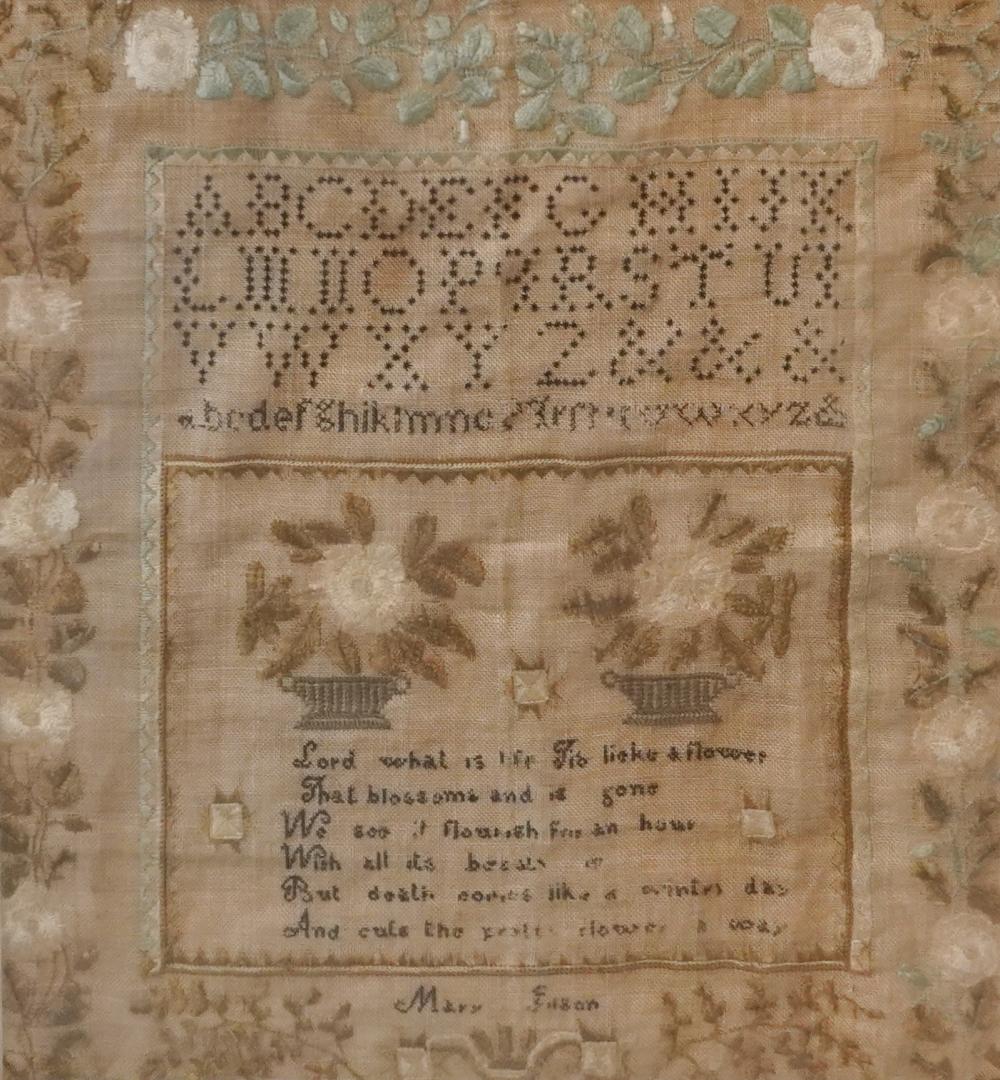 A B C D E F G H I J K
L M N O P Q R S T U
V W X Y Z & & &
a b c d e f g h i k l m n o q r s t u v w x y z &
Lord what is life Tis lieke a flower
That blossoms and is gone
We see it flourish for an hour
With all its beauty on
But death comes like a wintry day
And cuts the pretty flower a way
Mary